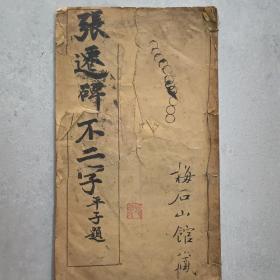 張遷碑不二字
平子題
梅石山館藏